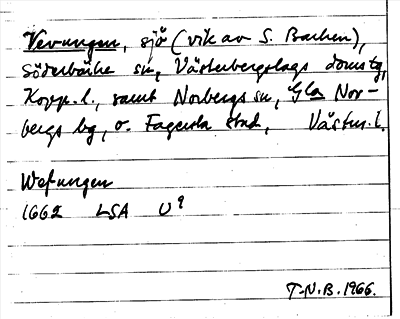 Vevungen, sjö (vik av S. Barken),
Söderbärke sn, Västerbergslags domstg,
Kopp. l., samt Norbergs sn, Gla Nor-
bergs bg, o. Fagersta stad, Västm. l.
Wefungen
1662 LSA U9
T.N.B. 1966.